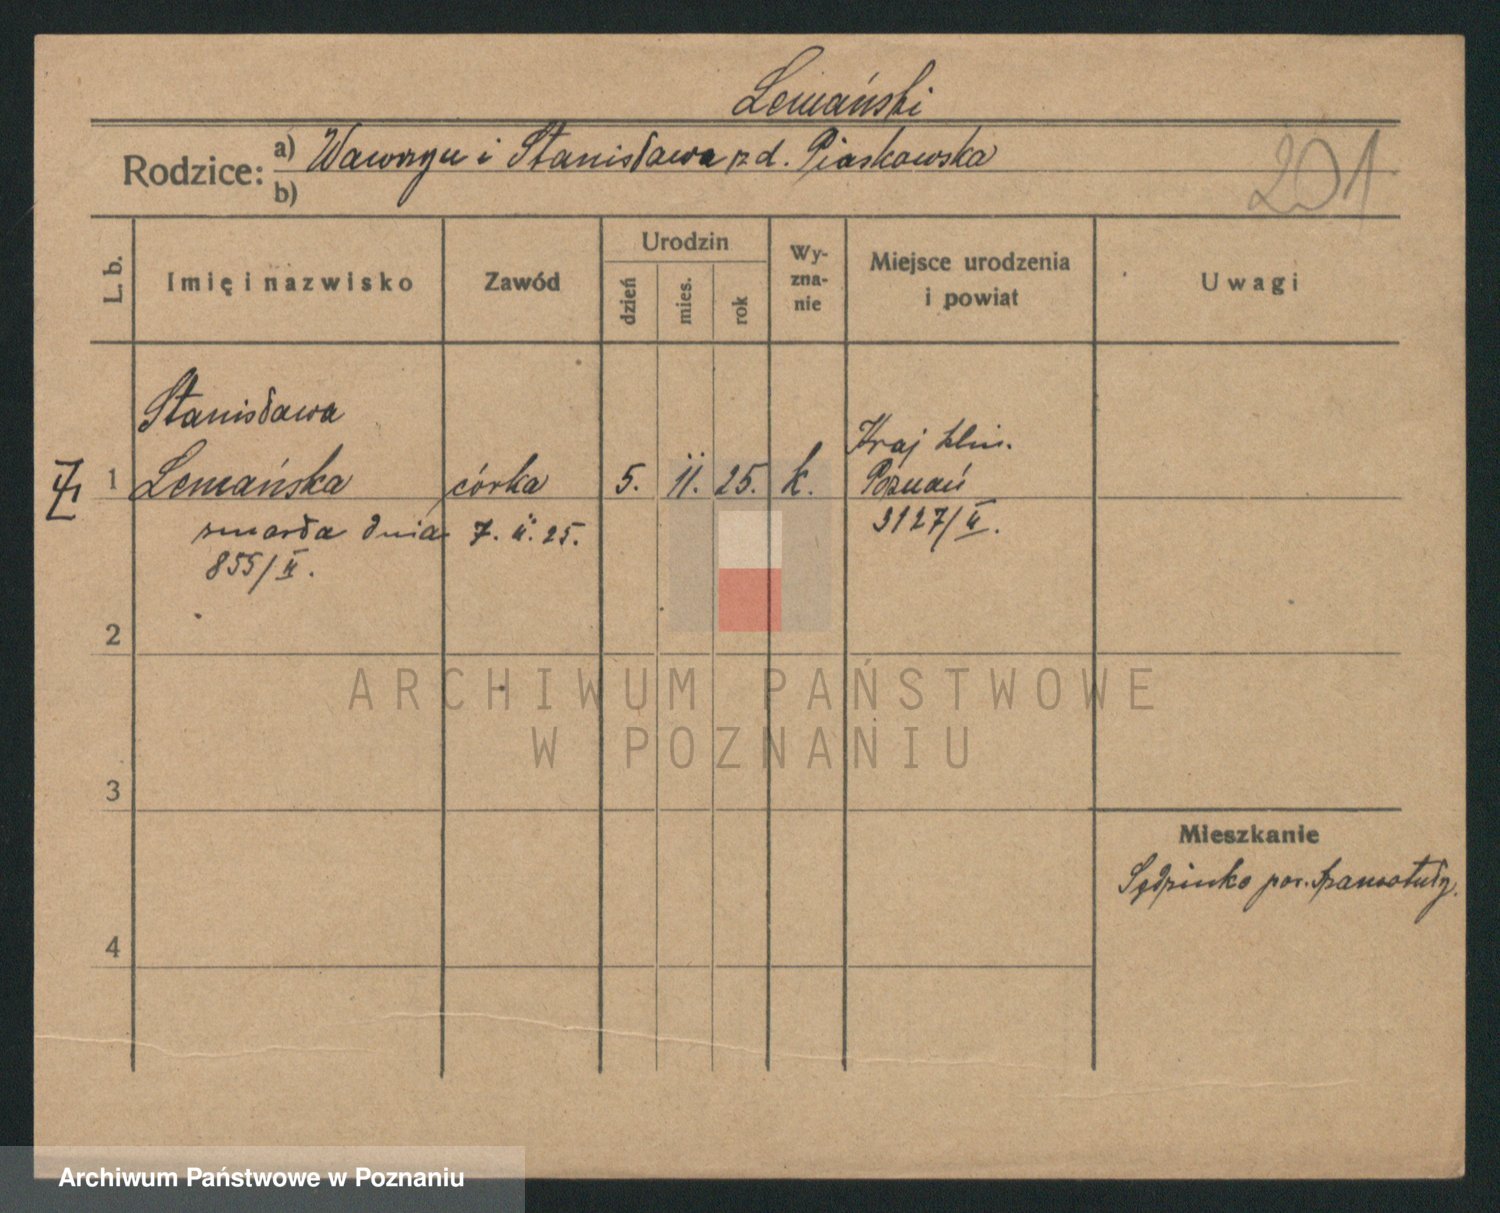 Lemański
Rodzice: a) Wawrzyn i Stanisława z d. Piaskowska
b)
201
L. b.
Imię i nazwisko
Zawód
Urodzin
dzień
mies.
rok
Wy-
zna-
nie
Miejsce urodzenia
i powiat
Uwagi
Stanisława
1 Lemańska córka 5. II. 25. k.
Kraj. klin.
Poznań
3127/II.
zmarła dnia 7. II. 25.
855/II.
2
3
4
Mieszkanie
Sędzinko pow. Szamotuły.
ARCHIWUM PAŃSTWOWE
W POZNANIU
Archiwum Państwowe w Poznaniu